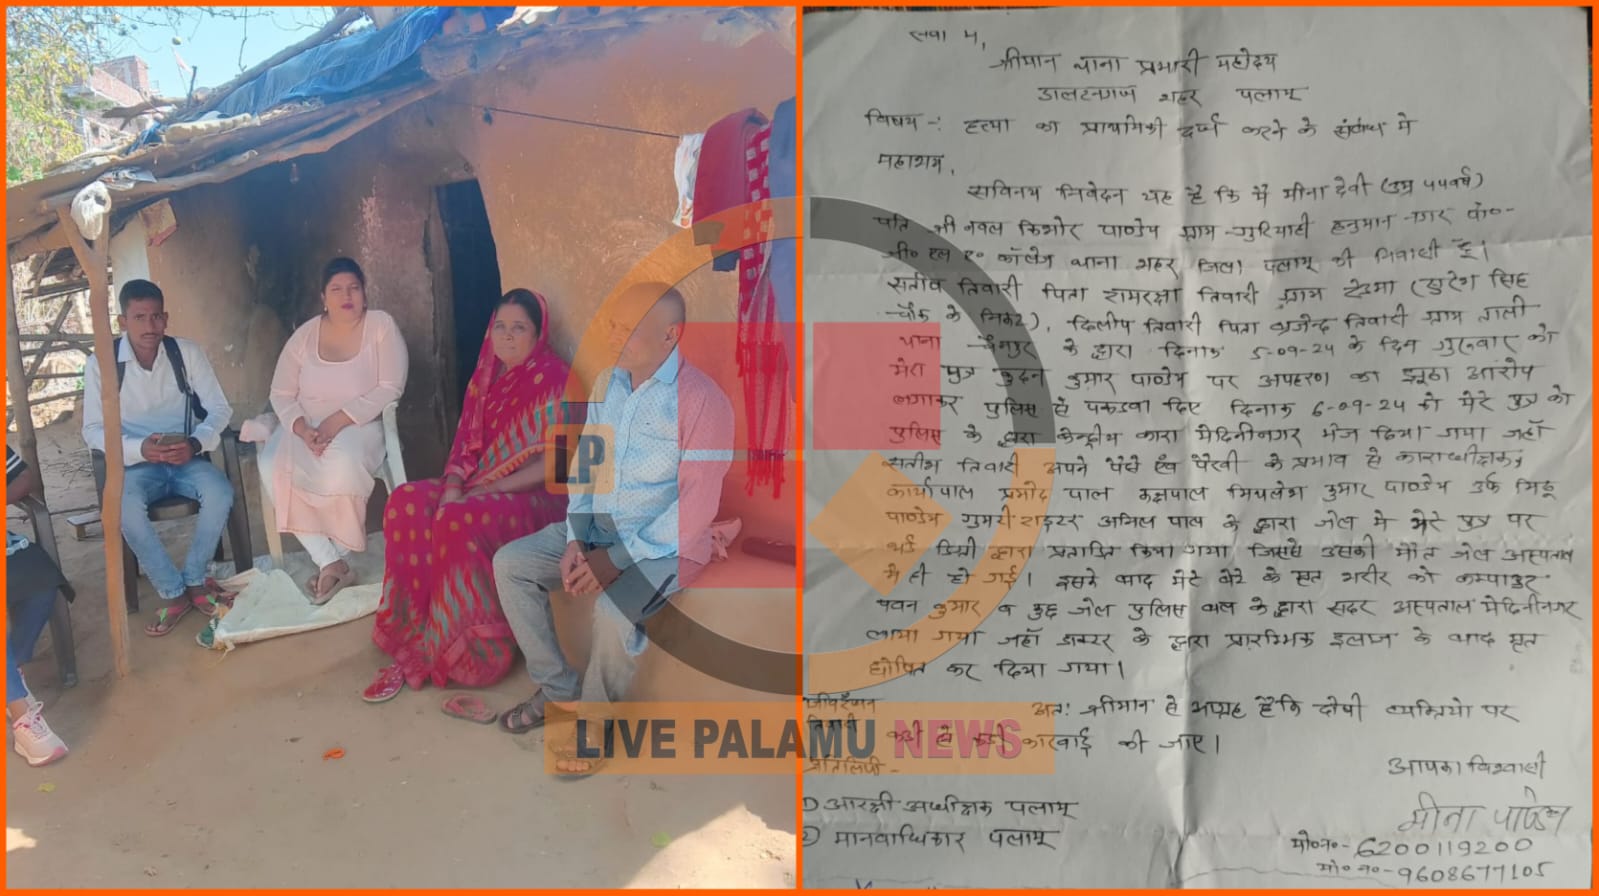 सेवा में,
श्रीमान थाना प्रभारी महोदय
डालटनगंज शहर पलामू
विषय -: हत्या का प्राथमिकी दर्ज करने के संबंध मे
महाशय,
सविनय निवेदन यह है कि मैं मीना देवी (उम्र ५५वर्ष)
पति श्री नवल किशोर पाण्डेय ग्राम हनुमान नगर पो०-
जी० एल ए० कॉलेज थाना शहर जिला पलामू की निवासी हूँ।
सतीश तिवारी पिता रामरक्षा तिवारी ग्राम (सुरेश सिंह
चौक के निकट), दिलीप तिवारी पिता तिवारी ग्राम
थाना चैनपुर के द्वारा दिनांक 5-09-24 के दिन गुरुवार को
मेरा पुत्र कुमार पाण्डेय पर अपहरण का झूठा आरोप
लगाकर पुलिस से पकडवा दिए दिनांक 6-09-24 को मेरे पुत्र को
पुलिस के द्वारा केन्द्रीय कारा मेदिनीनगर भेज दिया गया जहाँ
सतीश तिवारी अपने पैसे एवं पैरवी के प्रभाव से काराधीक्षक,
प्रमोद पाल कक्षपाल मिथलेश कुमार पाण्डेय उर्फ
पाण्डेय राइटर अनिल पाल के द्वारा जेल मे मेरे पुत्र पर
थर्ड डिग्री द्वारा प्रताडित किया गया जिससे उसकी मौत जेल अस्पताल
मे ही हो गई। इसके बाद मेरे बेटे के मृत शरीर को कम्पाउंडर
पवन कुमार व कुछ जेल पुलिस बल के द्वारा सदर अस्पताल मेदिनीनगर
लाया गया जहाँ डाक्टर के द्वारा प्रारम्भिक इलाज के बाद मृत
घोषित कर दिया गया।
अतः श्रीमान से आग्रह है कि दोषी व्यक्तियो पर
कडी से कडी कारवाई की जाए।
आपका विश्वासी
प्रतिलिपी -
1) आरक्षी अधीक्षक पलामू
2) मानवाधिकार पलामू
मीना पाण्डेय
मो०न०- 6200119200
मो०न०- 9608677105
LP
LIVE PALAMU NEWS